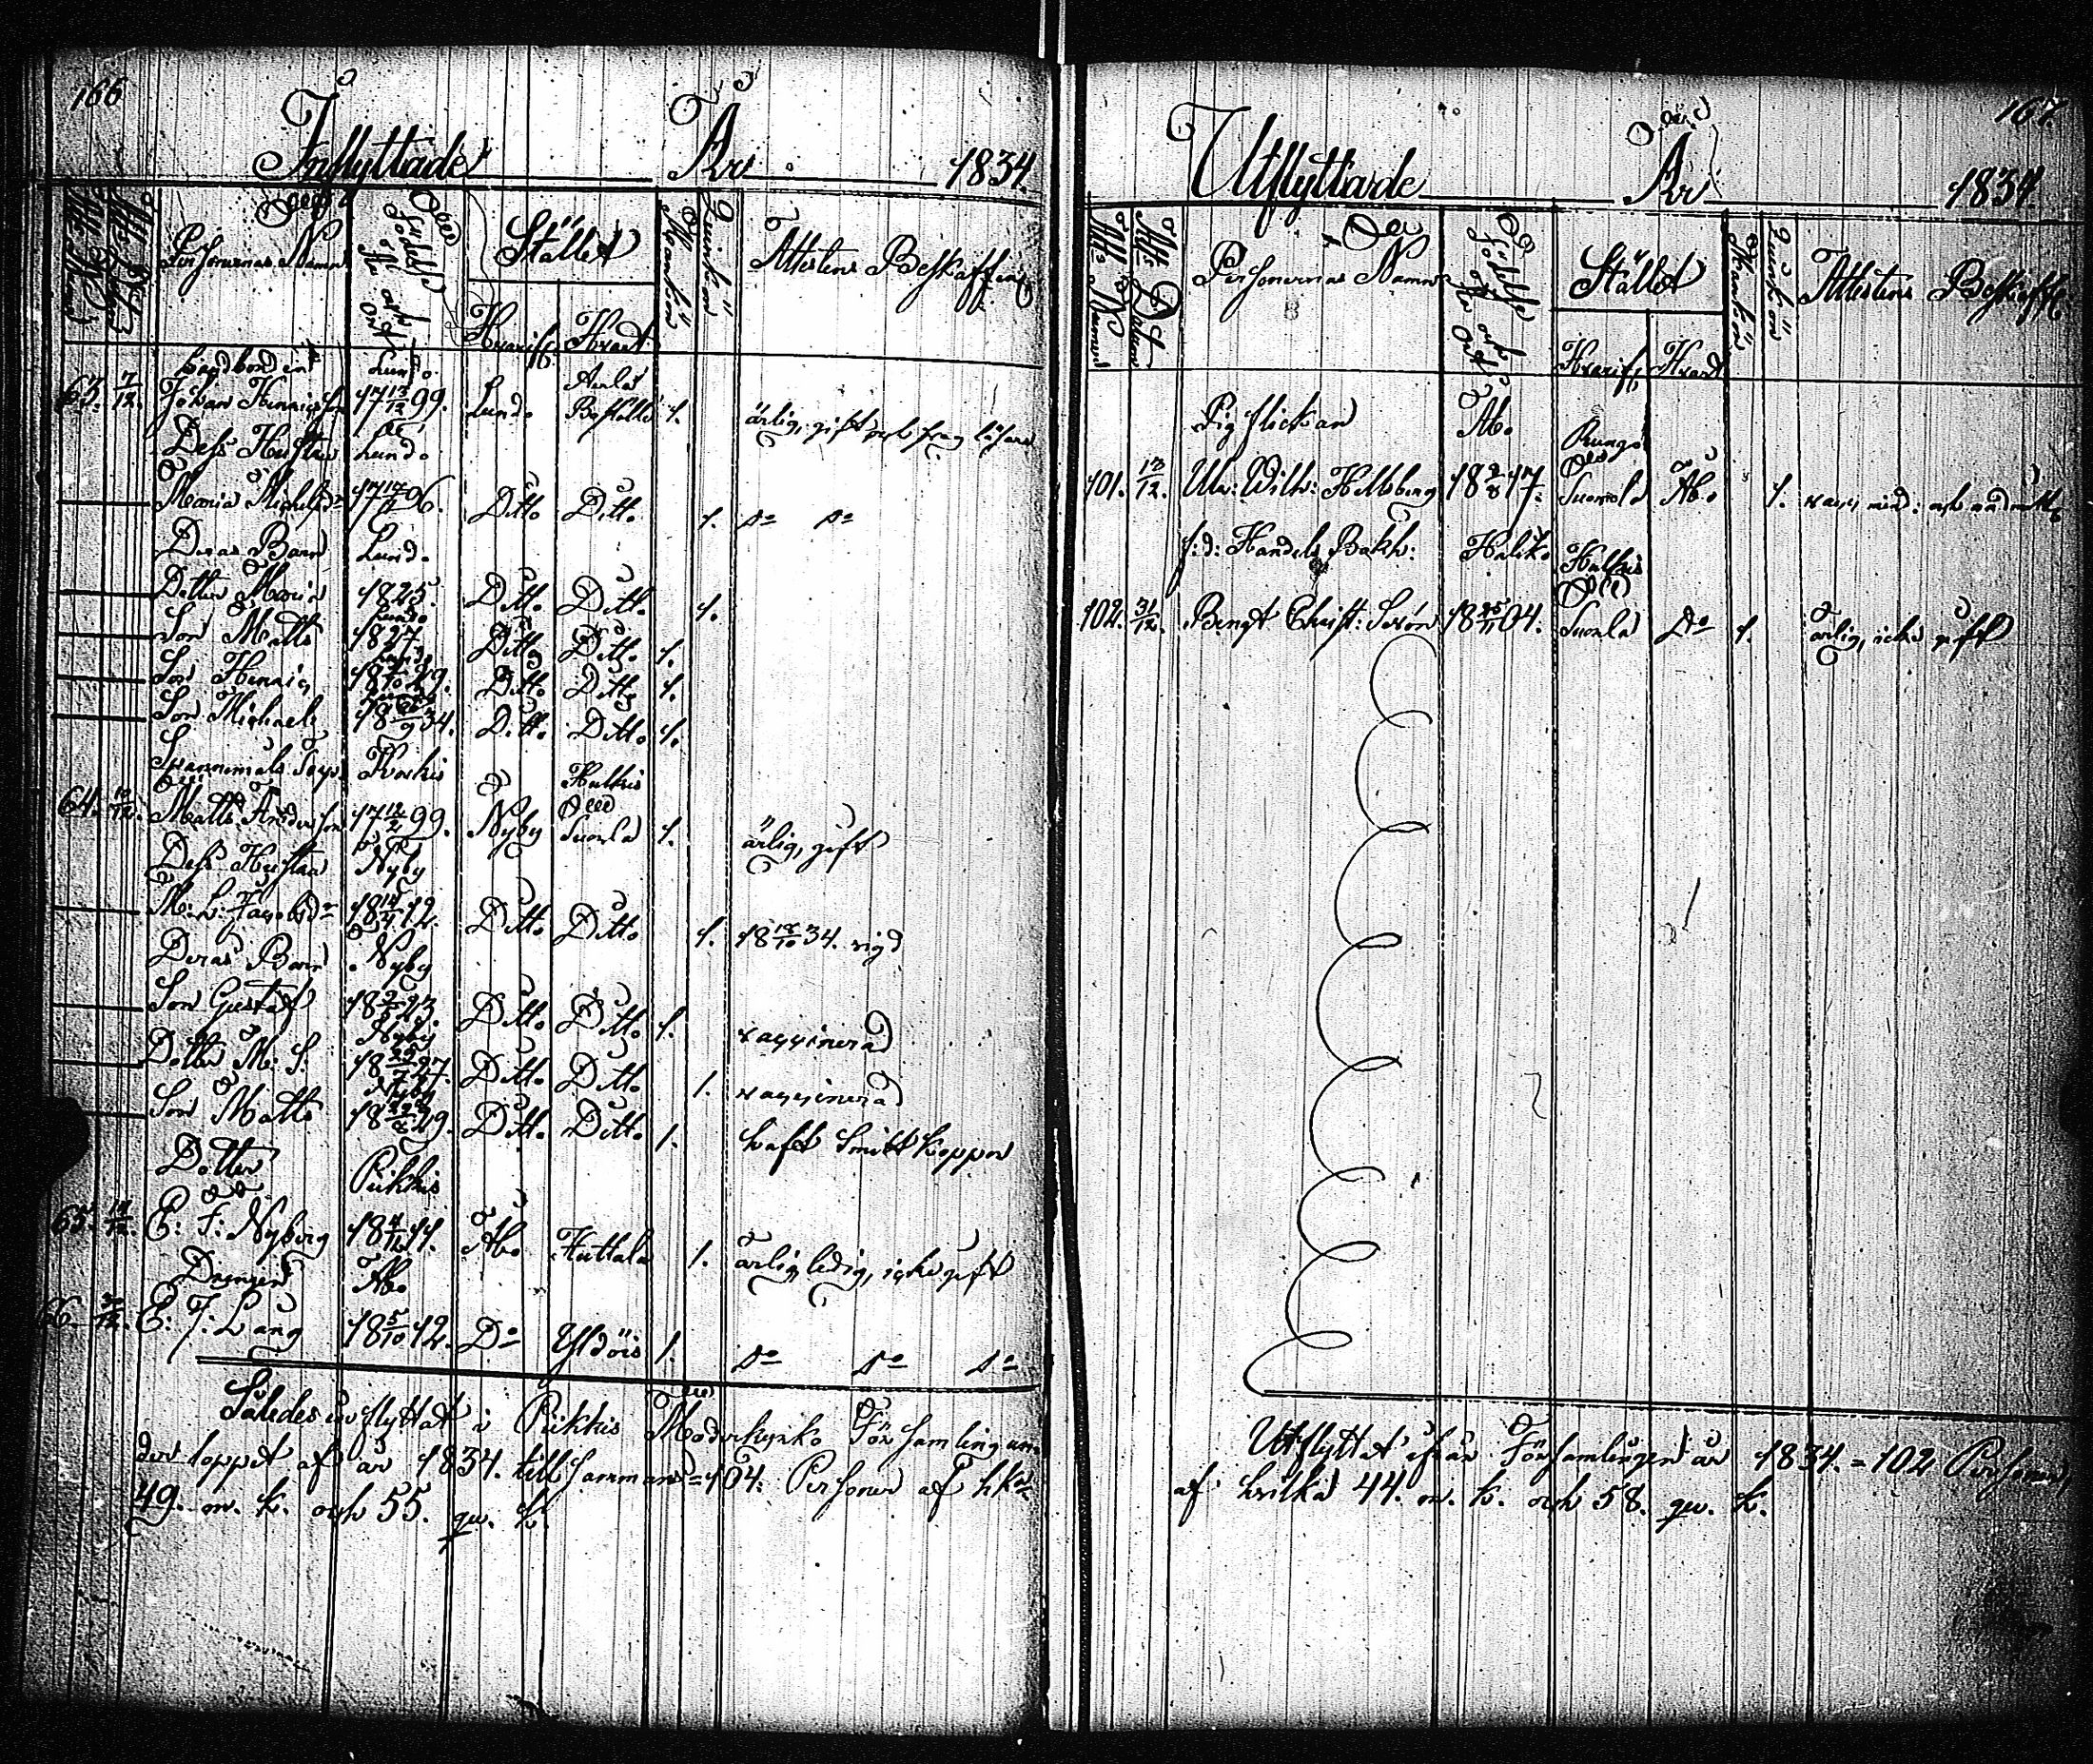 166
Inflyttade År 1834.
Personernas Namn
Födelse År och Ort
Stället
Hvarifr. Hvart
Mankön
Quinkön
Attestens Beskaffenh.
Lundo Aula
63. 7/12. Johan Henricsson 17 13/12 99. Lundo Boställe 1. ärlig, gift
Dess Hustru Lundo
Maria Michelsdr Ditto Ditto 1. do do
Deras Barn Lundo
Dotter Maria 1825. Ditto Ditto 1.
Lundo
Son Matts 1827 Ditto Ditto 1.
Son Henric Ditto Ditto 1.
Son Michael 34. Ditto Ditto 1.
Korkis Halkis
64. Matts Andersson 17 99. Nyby Suorla 1. ärlig, gift
Dess Hustru Nyby
M: L: Jacobsdr 18 12. Ditto Ditto 1. 18 34. vigd
Deras Barn Nyby
Son Gustaf 18 23. Ditto Ditto 1. vaccinerad
Nyby
Dotter M: S: 18 27. Ditto Ditto 1. vaccinerad
Nyby
Son Matts 18 29. Ditto Ditto 1. haft Smittkoppor
Dotter Piikkis
65. E: F: Nyberg 18 11. Åbo Huttala 1. ärlig, ledig, icke gift
Drengen Åbo
66. E: J: Lang 18 5/10 12. Do Yldöis 1. do do do
Således inflyttat i Piikkis Moderkyrko Församling un-
der loppet af år 1834. tillsammans = 104. Personer af hka
49. m. k. och 55. qv. k.
167.
Utflyttade År 1834.
Atts Numer
Atts Datum
Personernas Namn
Födelse År och Ort
Stället
Hvarifr. Hvart
Mankön
Quinkön
Attestens Beskaffh.
Pig flickan Åbo Runga
101. 13/12. Ulr: Wilh: Hellsberg 18 17. Suorola Åbo 1.
f:d: Handels Bokh: Haliko Halkis
102. 31/12. Bengt Christ: Serón 18 25/11 04. Suorla Do 1. ärlig, icke gift
Utflyttat ifrån Församlingen år 1834. = 102 Personer,
af hvilka 44. m. k. och 58. qv. k.